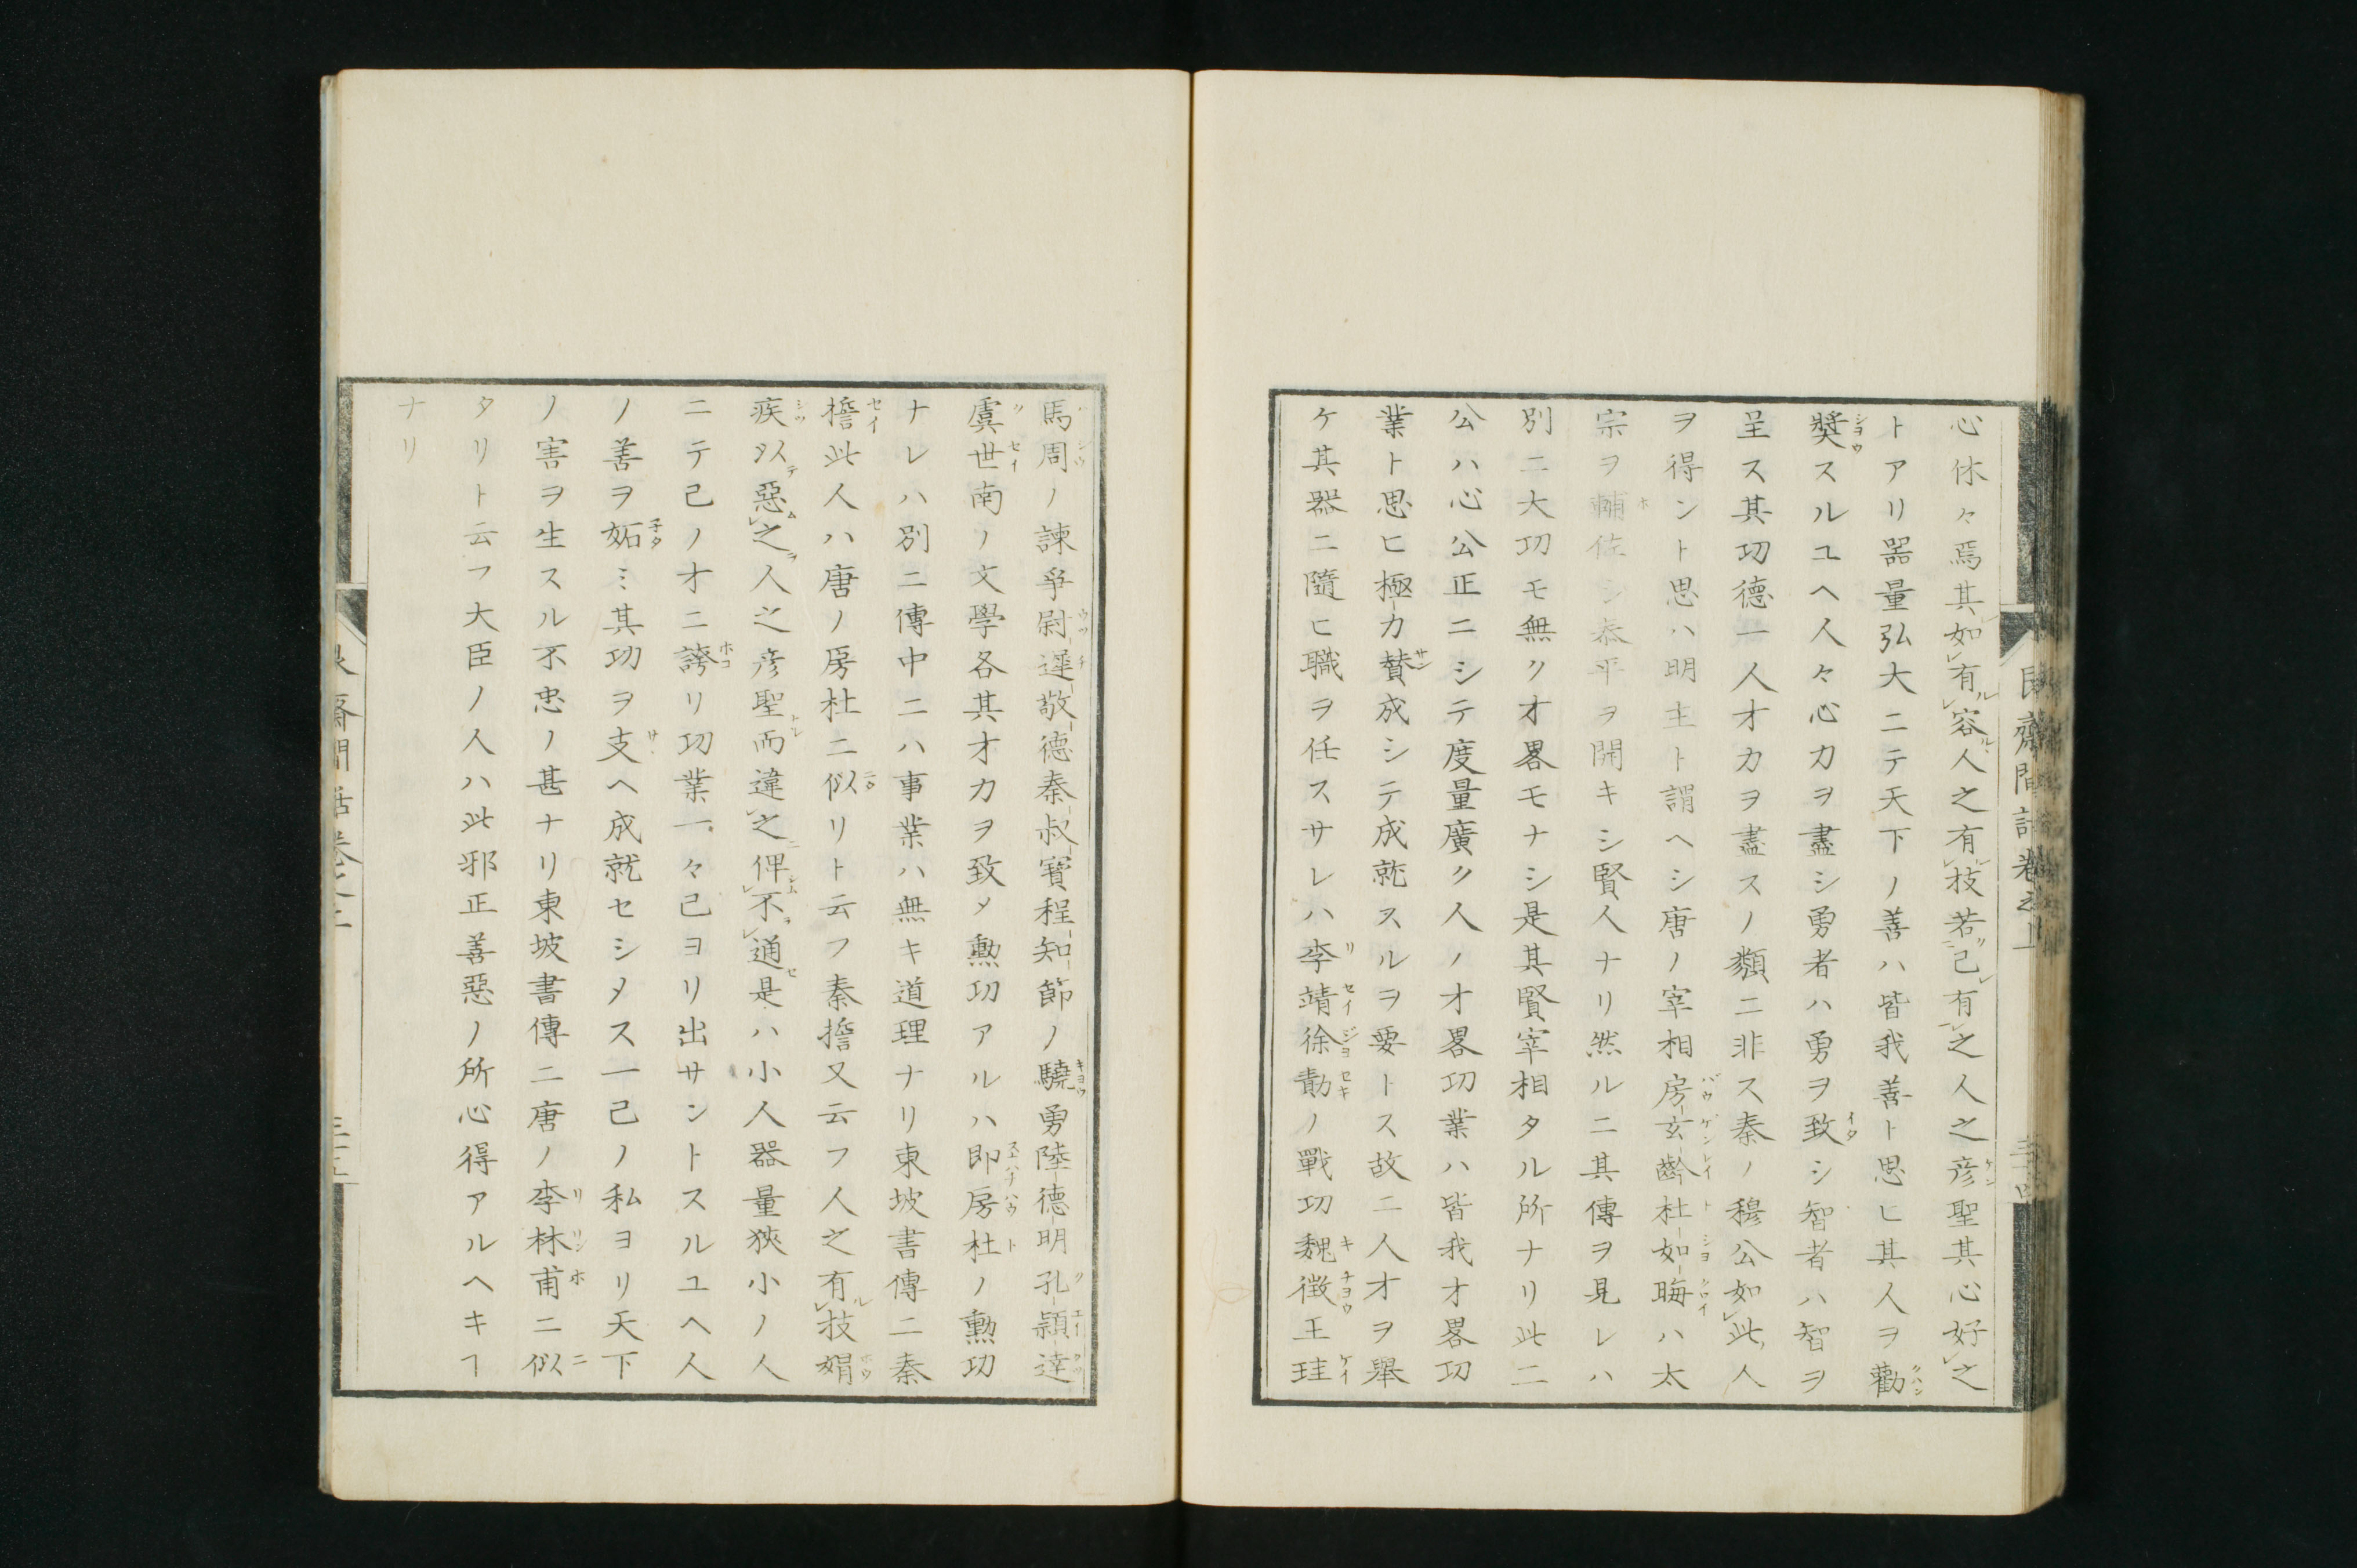 心休々焉其如有容人之有技若己有之人之彦聖其心好之
トアリ器量弘大ニテ天下ノ善ハ皆我善ト思ヒ其人ヲ勸
奬スルユヘ人々心力ヲ盡シ勇者ハ勇ヲ致シ智者ハ智ヲ
呈ス其功德一人才力ヲ盡スノ類ニ非ス秦ノ穆公如此人
ヲ得ント思ハ明主ト謂ヘシ唐ノ宰相房玄齡杜如晦ハ太
宗ヲ輔佐シ泰平ヲ開キシ賢人ナリ然ルニ其傳ヲ見レハ
別ニ大功モ無ク才畧モナシ是其賢宰相タル所ナリ此二
公ハ心公正ニシテ度量廣ク人ノ才畧功業ハ皆我才畧功
業ト思ヒ極力賛成シテ成就スルヲ要トス故ニ人才ヲ舉
ケ其器ニ隨ヒ職ヲ任スサレハ李靖徐勣ノ戰功魏徴王珪
馬周ノ諫爭尉遲敬德秦叔寳程知節ノ驍勇陸德明孔頴達
虞世南ノ文學各其才力ヲ致メ勲功アルハ即房杜ノ勲功
ナレハ別ニ傳中ニハ事業ハ無キ道理ナリ東坡書傳ニ秦
擔此人ハ唐ノ房杜ニ似リト云フ秦擔又云フ人之有技娟
疾以惡之人之彦聖而違之俾不通是ハ小人器量狹小ノ人
ニテ己ノ才ニ誇リ功業一々己ヨリ出サントスルユヘ人
ノ善ヲ妬ミ其功ヲ支ヘ成就セシメス一己ノ私ヨリ天下
ノ害ヲ生スル不忠ノ甚ナリ東坡書傳ニ唐ノ李林甫ニ似
タリト云フ大臣ノ人ハ此邪正善惡ノ所心得アルヘキヿ
ナリ